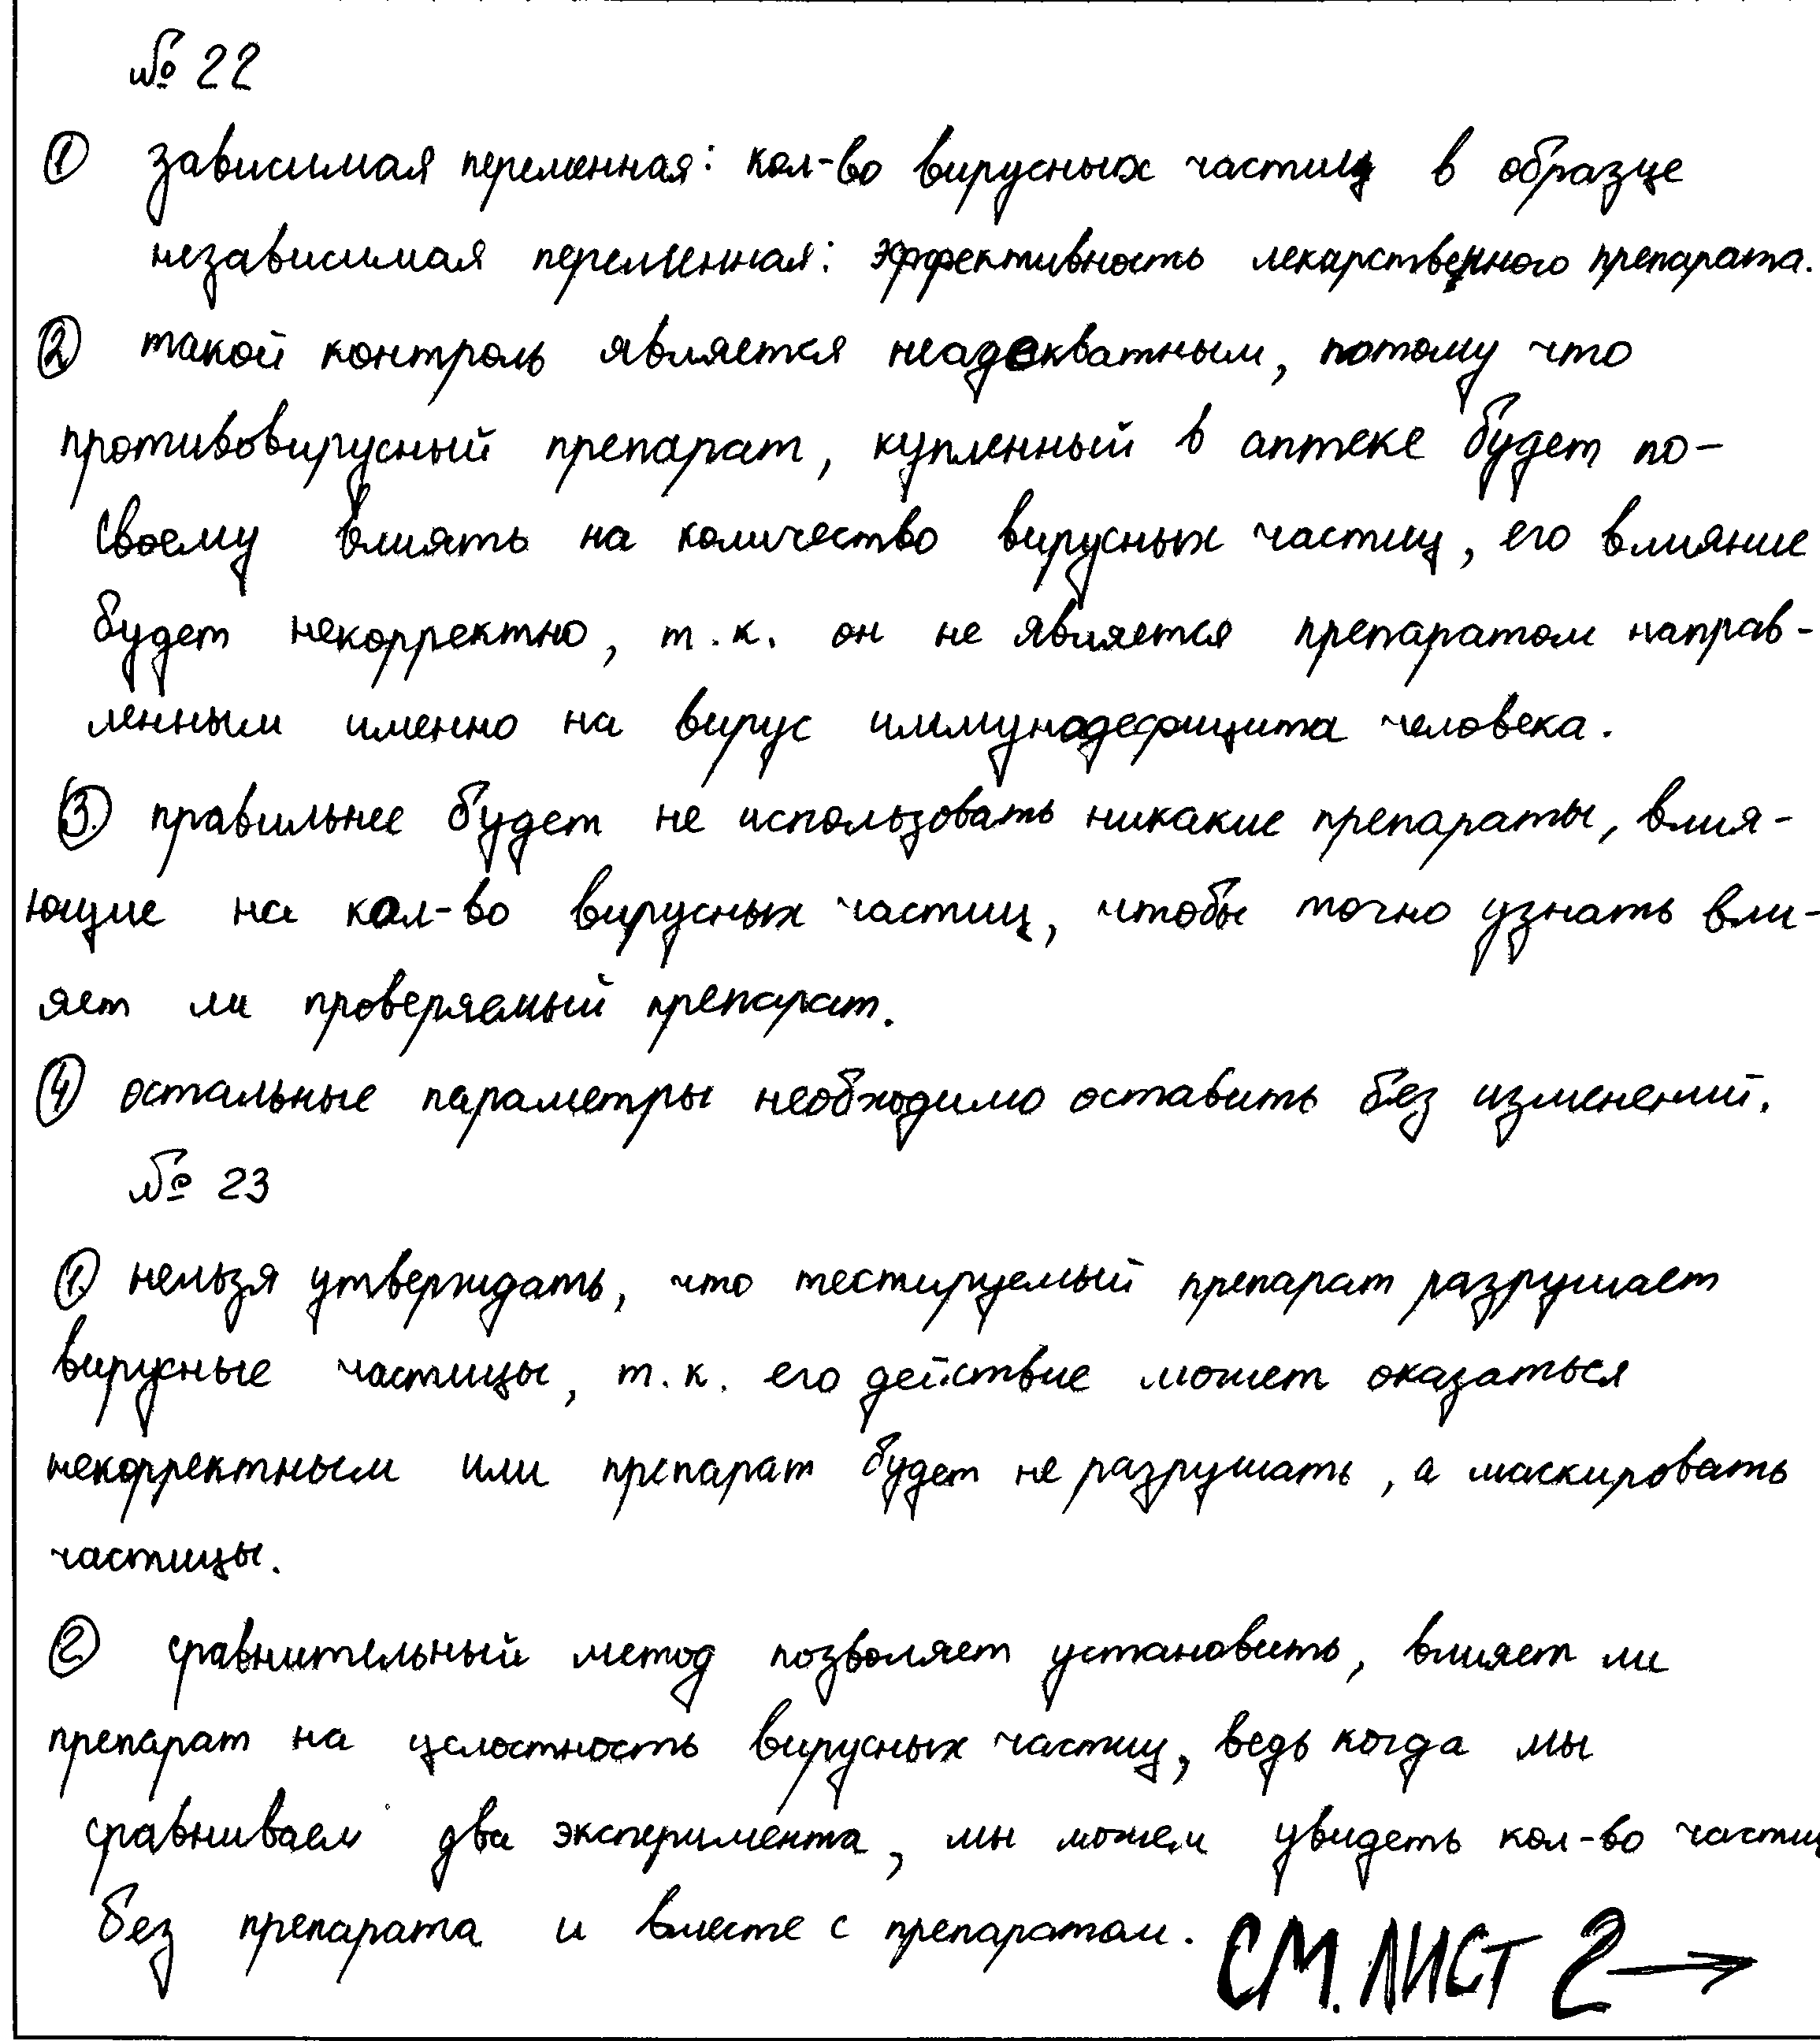 № 22
① зависимая переменная: кол-во вирусных частиц в образце
независимая переменная: эффективность лекарственного препарата.
② такой контроль является неадекватным, потому что
противовирусный препарат, купленный в аптеке будет по-
своему влиять на количество вирусных частиц, его влияние
будет некорректно, т.к. он не является препаратом направ-
ленным именно на вирус иммунодефицита человека.
③. правильнее будет не использовать никакие препараты, влия-
ющие на кол-во вирусных частиц, чтобы точно узнать вли-
яет ли проверяемый препарат.
④ остальные параметры необходимо оставить без изменений.
№ 23
①. нельзя утверждать, что тестируемый препарат разрушает
вирусные частицы, т.к. его действие может оказаться
некорректным или препарат будет не разрушать, а маскировать
частицы.
②. сравнительный метод позволяет установить, влияет ли
препарат на целостность вирусных частиц, ведь когда мы
сравниваем два эксперимента, мы можем увидеть кол-во частиц
без препарата и вместе с препаратом. СМ. ЛИСТ 2 →